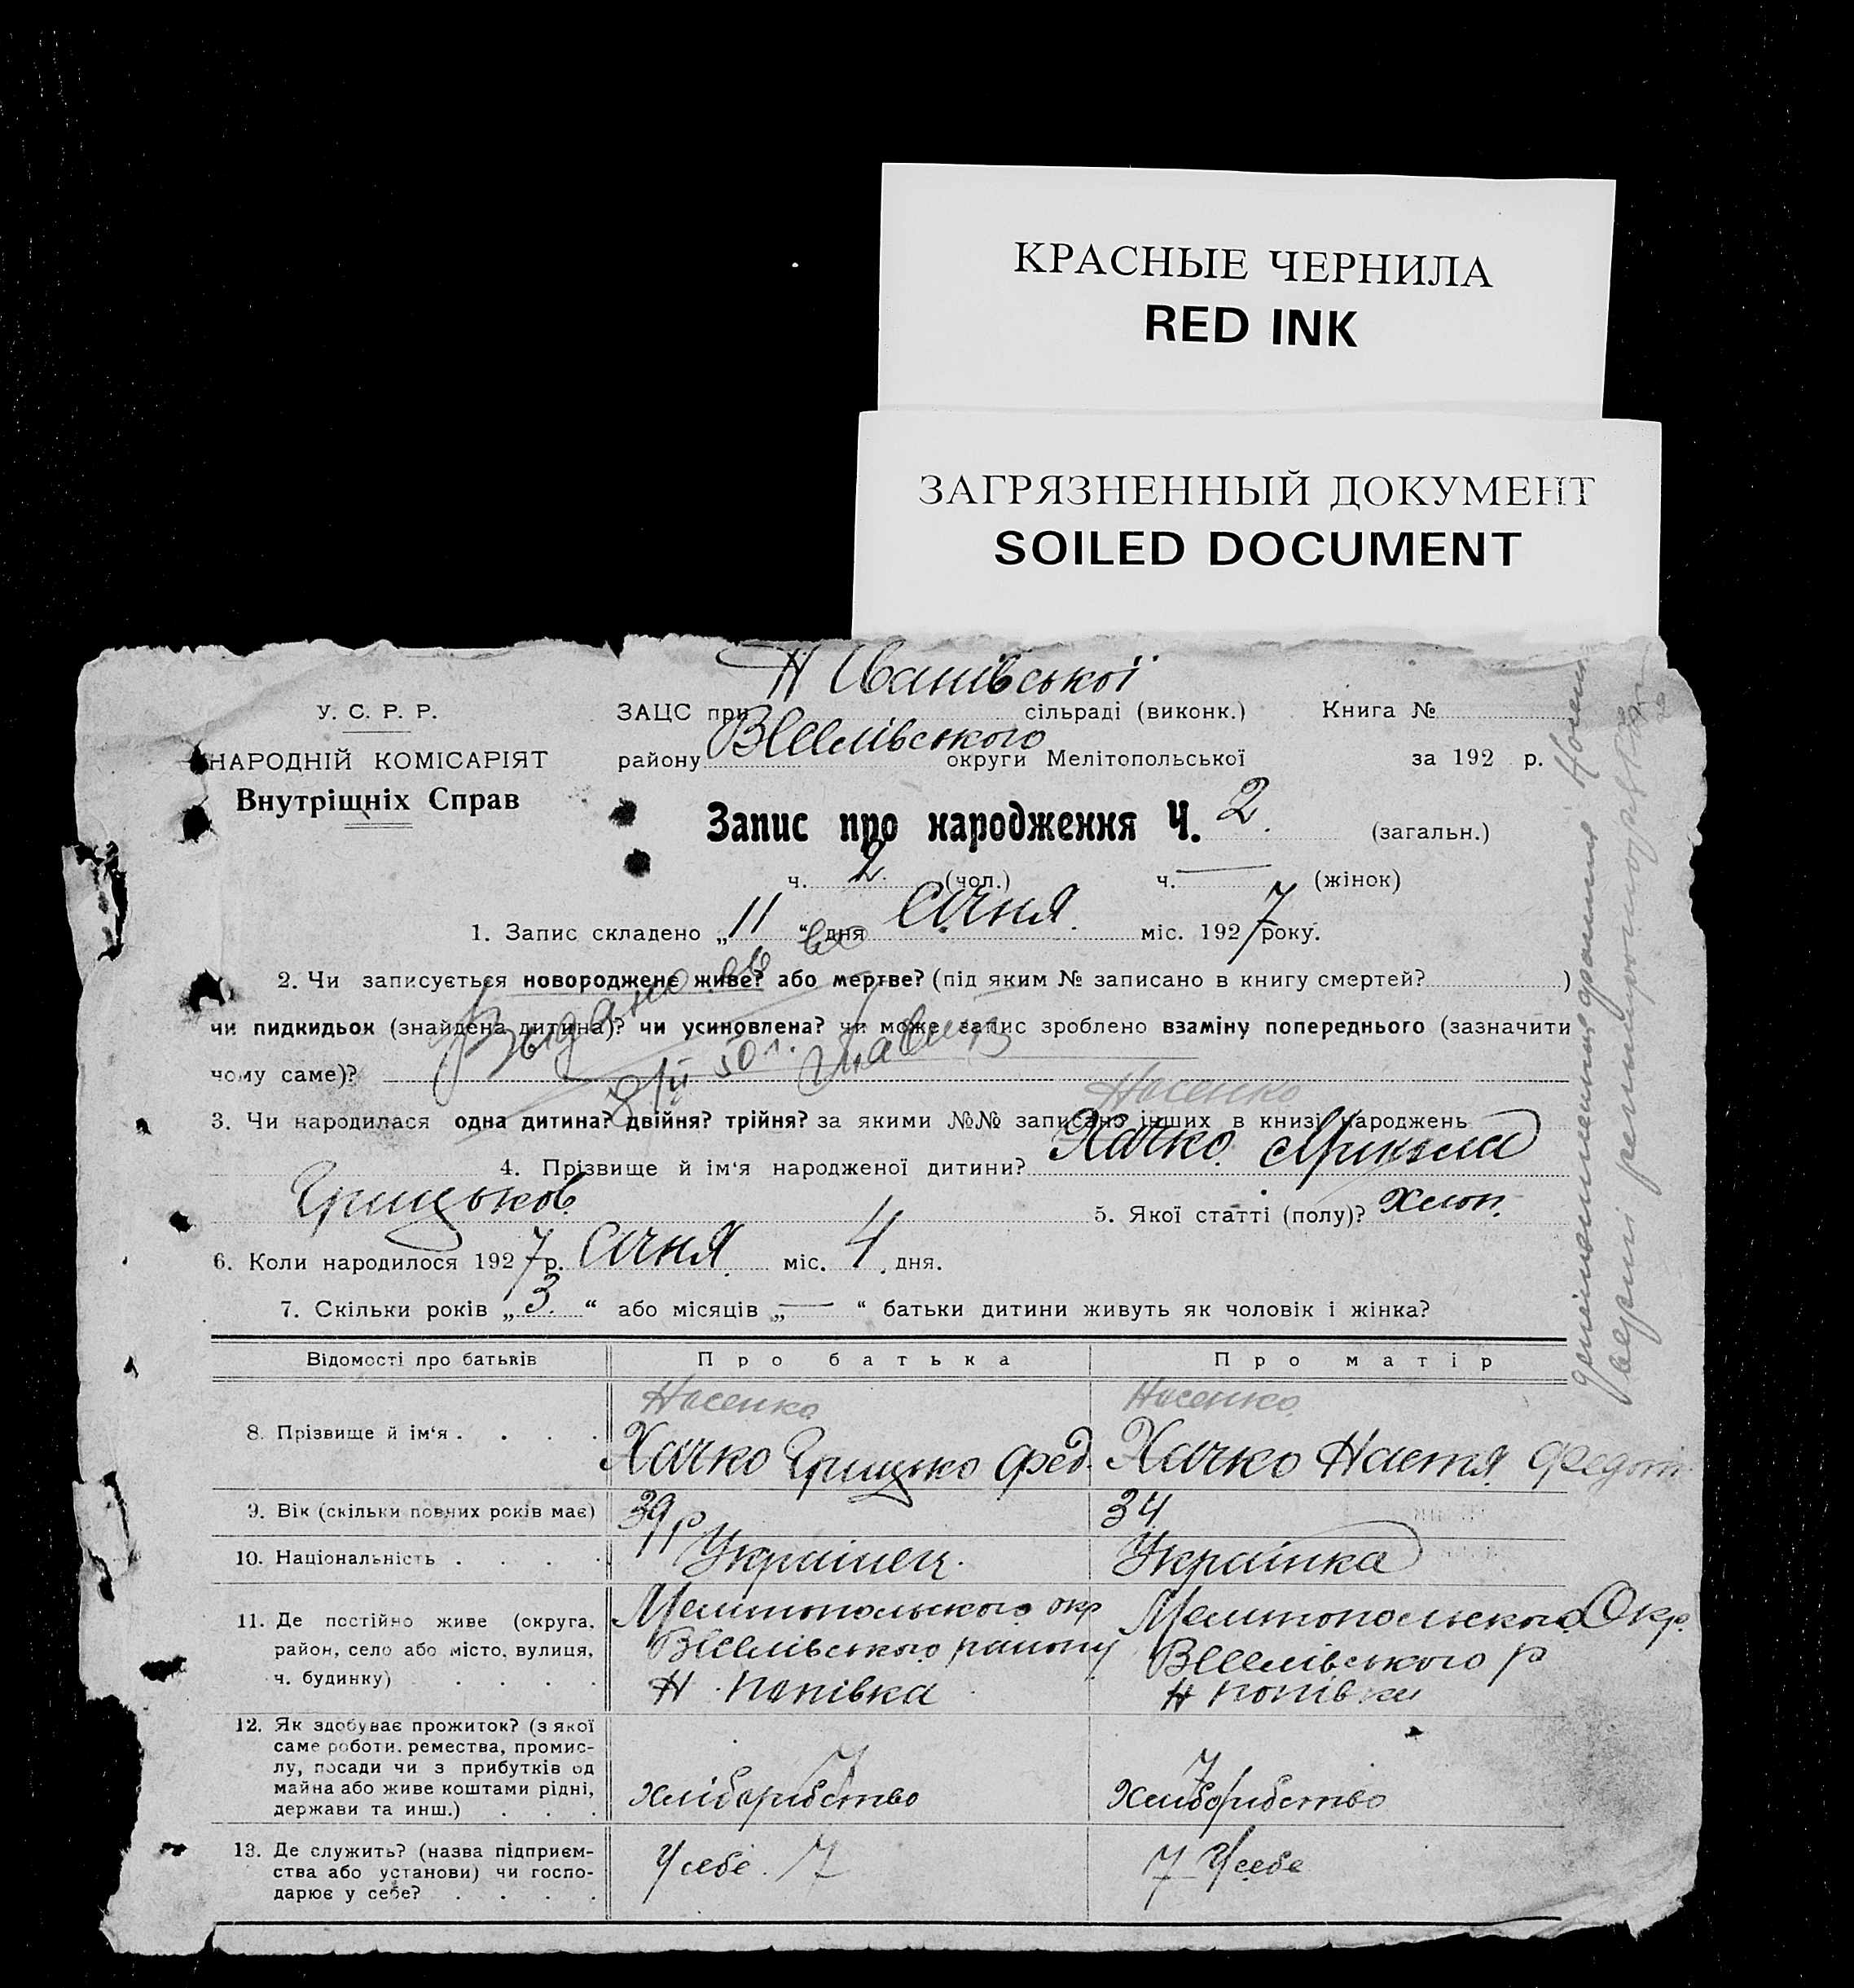 КРАСНЫЕ ЧЕРНИЛА
RED INK
ЗАГРЯЗНЕННЫЙ ДОКУМЕНТ
SOILED DOCUMENT
У. С. Р. Р.
НАРОДНІЙ КОМІСАРІЯТ
Внутріщніх Справ
ЗАЦС при Н Іванівської сільраді (виконк.) Книга №
району Веселівського округи Мелітопольської за 192 р.
Запис про народження Ч. 2. (загальн.)
ч. 2. (чол.) ч. — (жінок)
1. Запис складено „11“ дня Січня. міс. 1927 року.
2. Чи записується новороджене живе? або мертве? (під яким № записано в книгу смертей? )
чи пидкидьок (знайдена дитина)? чи усиновлена? чи може запис зроблено взаміну попереднього (зазначити
чому саме)?
Носенко
3. Чи народилася одна дитина? двійня? трійня? за якими №№ записано інших в книзі народжень
4. Прізвище й ім‘я народженої дитини? Хачко
Грицьков. 5. Якої статті (полу)? Хлоп.
6. Коли народилося 1927 р. Січня міс. 4 дня.
7. Скільки років „3.“ або місяців „—“ батьки дитини живуть як чоловік і жінка?
Відомості про батьків Про батька Про матір
Носенко Носенко
8. Прізвище й ім‘я . . . . Хачко Грицько Фед. Хачко Настя Федот
9. Вік (скільки повних років має) 39 р 34
10. Національність . . . . Українец. Українка
11. Де постійно живе (округа, район, село або місто, вулиця, ч. будинку) . . . .
Мелитопольского окр Мелитопольского Окр.
Веселівського району Веселівського р
Н Попівка Н Попівка
12. Як здобуває прожиток? (з якої
саме роботи. ремества, промис-
лу, посади чи з прибутків од
майна або живе коштами рідні,
держави та инш.) . . . хліборобство хліборобство
13. Де служить? (назва підприєм-
ства або установи) чи госпо-
дарює у себе? . . . .
У себе. У себе